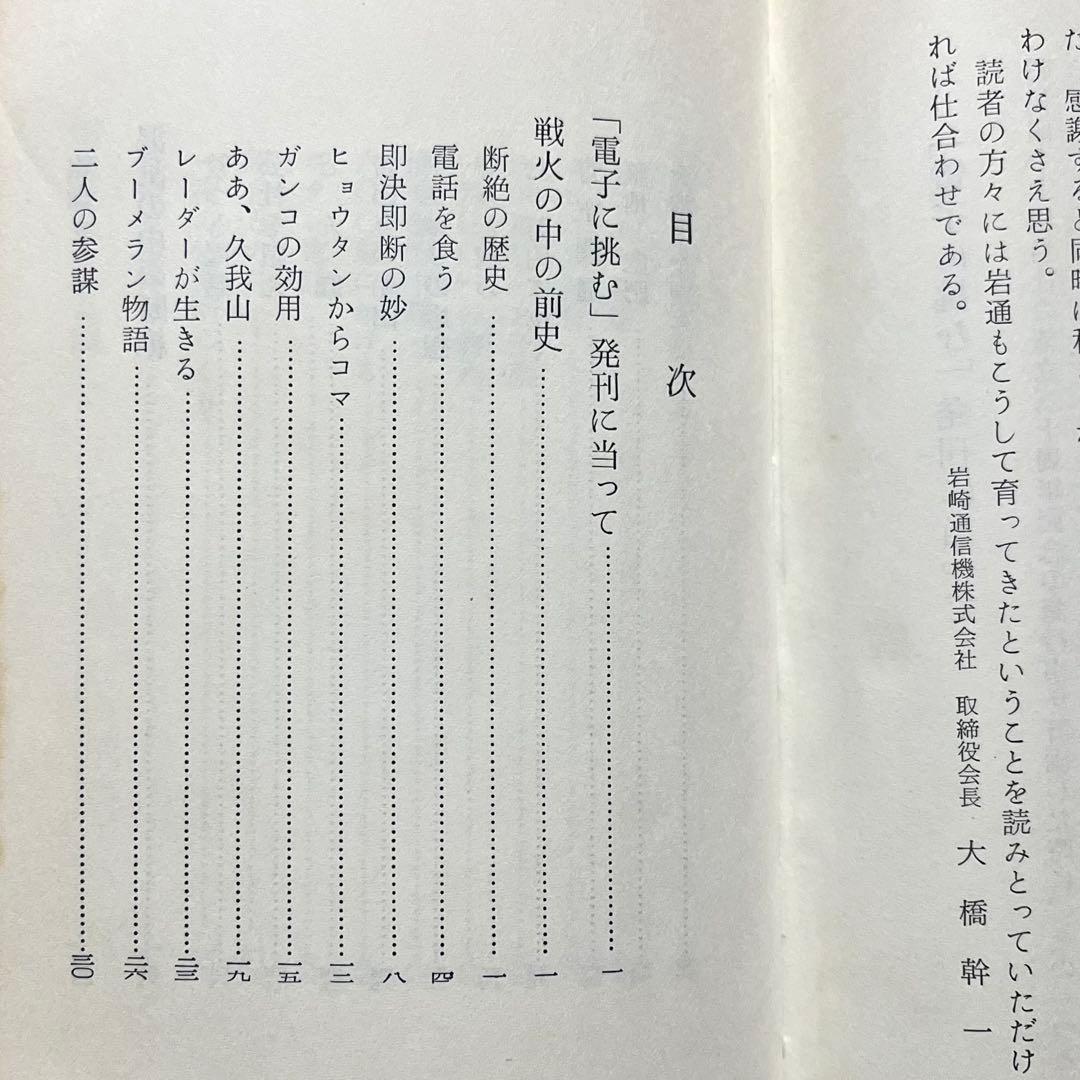 わけなくさえ思う。
読者の方々には岩通もこうして育ってきたということを読みとっていただけ
れば仕合わせである。
岩崎通信機株式会社 取締役会長 大橋幹一
目次
「電子に挑む」発刊に当って…………一
戦火の中の前史…………一
断絶の歴史…………一
電話を食う…………四
即決即断の妙…………八
ヒョウタンからコマ…………一二
ガンコの効用…………一五
ああ、久我山…………一九
レーダーが生きる…………二三
ブーメラン物語…………二六
二人の参謀…………三〇